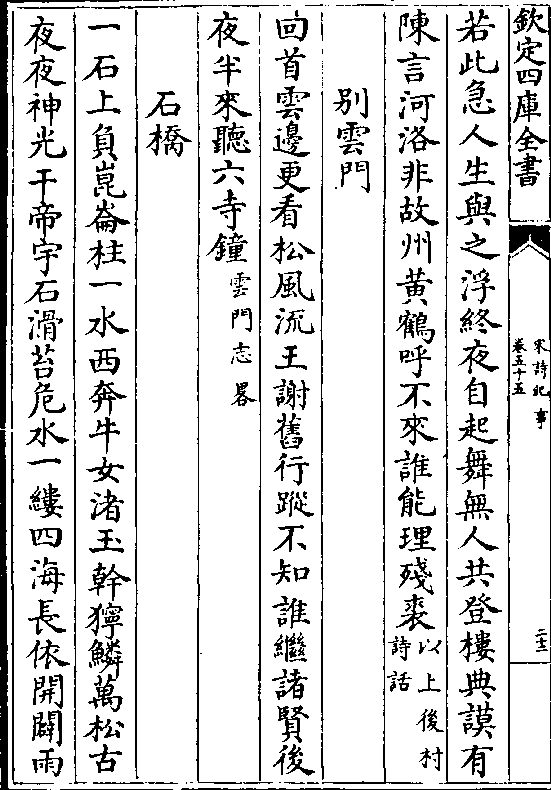 欽定四庫全書
宋詩紀事
卷五十五
二十三
若此急人生與之浮終夜自起舞無人共登樓典謨有
陳言河洛非故州黄鶴呼不來誰能理殘裘以上後村詩話
别雲門
回首雲邊更看松風流王謝舊行蹤不知誰繼諸賢後
夜半來聽六寺鐘雲門志畧
石橋
一石上負崑崙柱一水西奔牛女渚玉幹獰鱗萬松古
夜夜神光干帝宇石滑苔危水一縷四海長依開闢雨